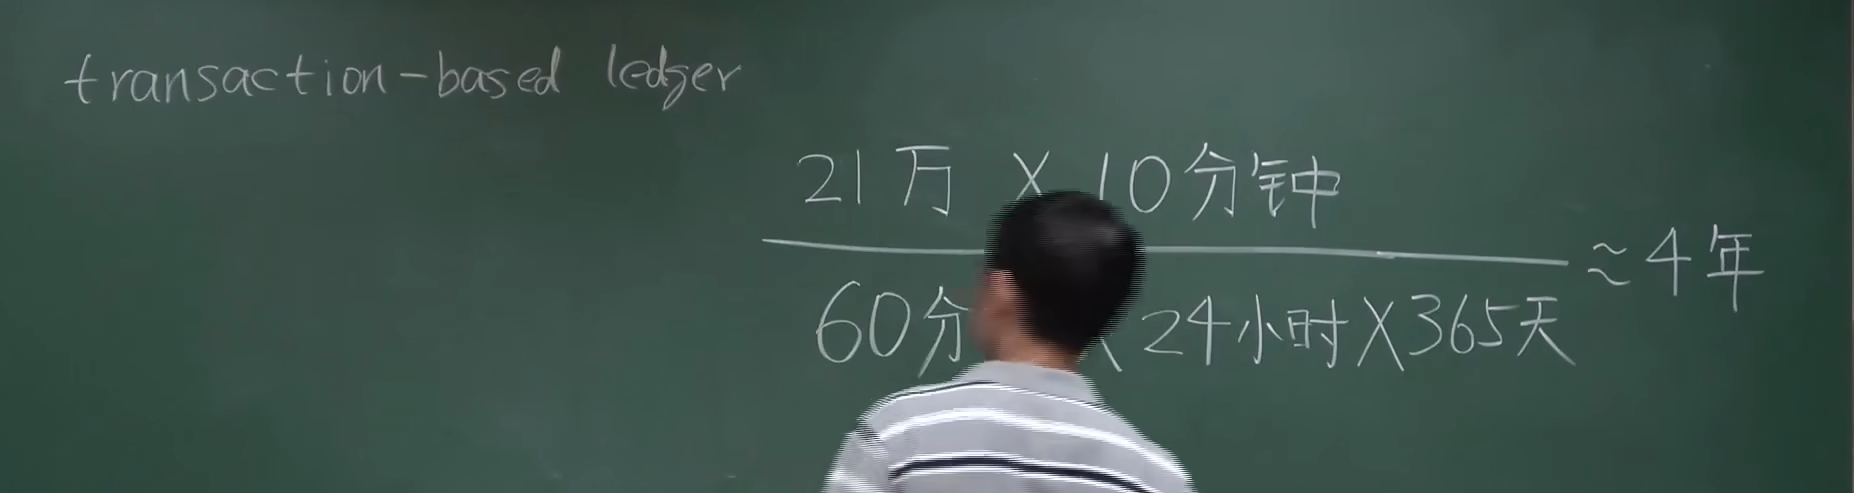 transaction-based ledger
21万 X 10分钟
≈4年
60分 X 24小时X365天